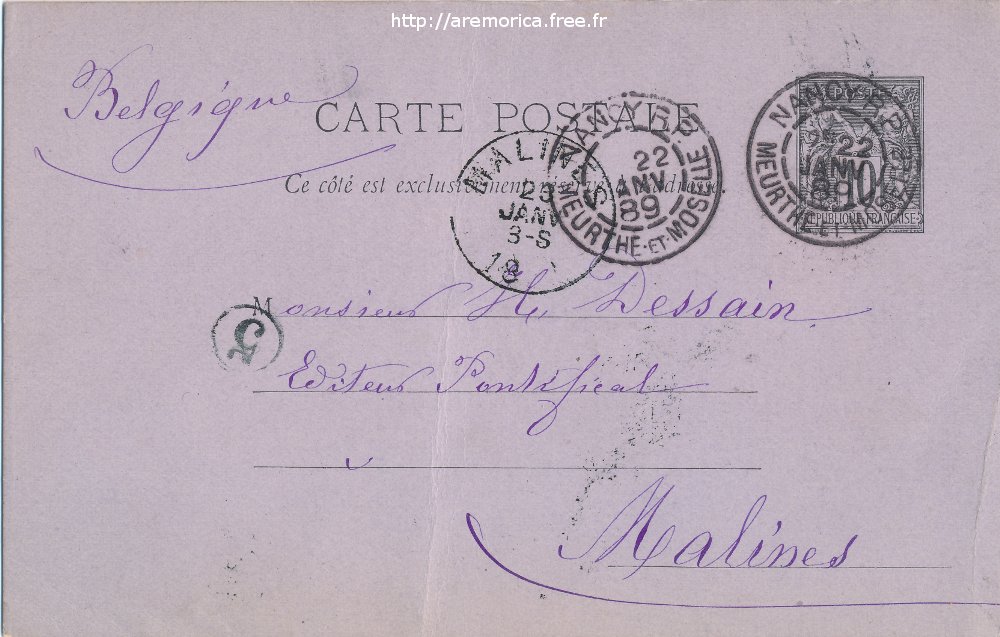 http://aremorica.free.fr
Belgique
CARTE POSTALE
Ce côté est exclusivement réservé à l'adresse.
NANCY
22
JANV
89
MEURTHE-ET-MOSELLE
NANCY
22
JANV
89
MEURTHE-ET-MOSELLE
POSTES
10
REPUBLIQUE FRANÇAISE
MALINES
23
JANV
3-S
18
Monsieur H. Dessain
5
Editeur Pontifical
Malines